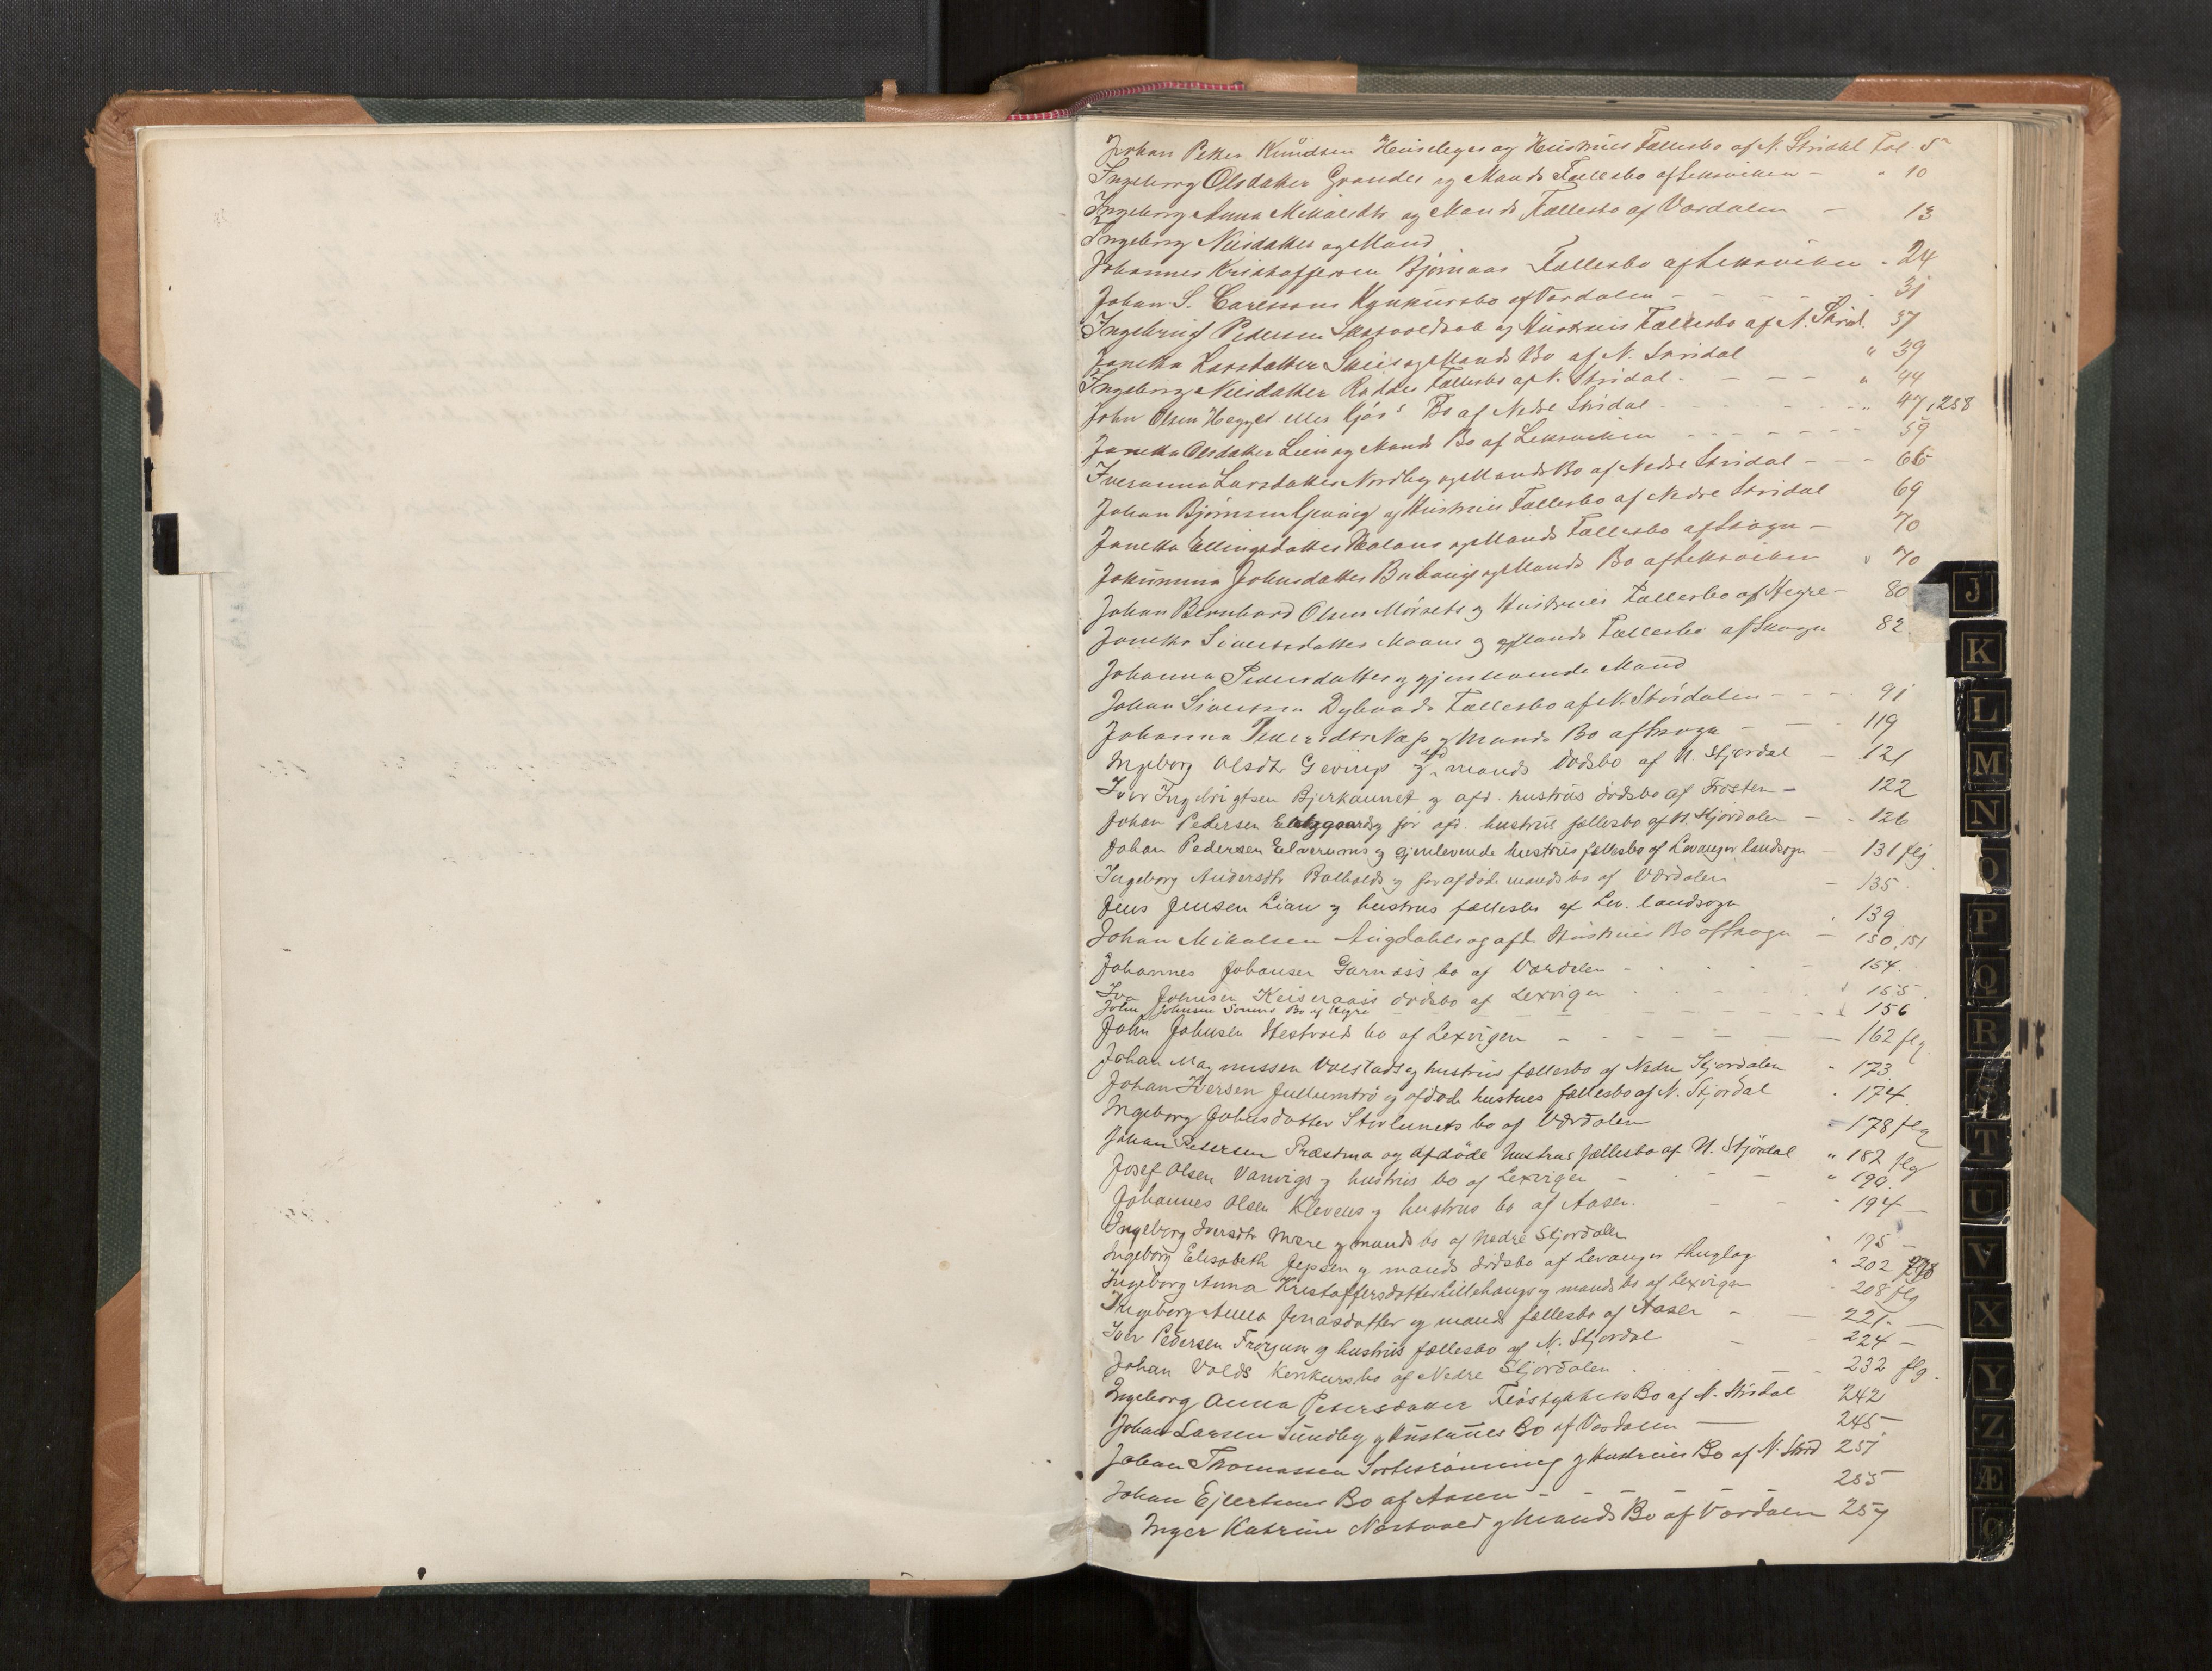 Johan Petter Knudsen Huseleges og Hustrues Fællesbo af N. Strdal Fol. 5
Ingeborg Olsdatter Grandes og Mands Fællesbo af Leksviken - " 10
Ingeborg Anna Mikalsdtr og Mands Fællesbo af Værdalen - 13
Ingeborg Nilsdatter og Mand
Johannes Kristoffersen Bjørnaas Fællesbo af Leksviken " 24
Johan S. Carlssons Konkursbo af Værdalen - - - 31
Ingebrigt Pedersen og Hustrues Fællesbo af N. Strdal. 37
Janetta Larsdatter og Mands Bo af N. Strdal " 39
Ingeborg Nilsdatter Fællesbo af N. Strdal. - - - " 44
John Olsen eller Bo af Nedre Strdal - - - " 47, 258
Janetta Olsdatter Lien og Mands Bo af Leksviken - - - - - - 59
Iveranna Larsdatter Nordby og Mands Bo af Nedre Strdal - - - 65
Johan Bjørnsen Geving og Hustrues Fællesbo af Nedre Strdal 69
Janetta Ellingsdatter og Mands Fællesbo af Skogn - 70
Johnsdatter og Mands Bo af Leksviken " 70
Johan Bernhard Olsen Mørsets og Hustrues Fællesbo af Hegre - 80
Janetta Sivertsdatter og Mands Fællesbo af Skogn 82
Johanna Pedersdatter og gjenlevende Mand
Johan Sivertsen Dybvads Fællesbo af N. Størdalen - - - 91
Johanna og Mands Bo af Skogn - - - 119
Ingeborg Olsdtr Gevings og afd mands dødsbo af N. Stjørdal - 121
Iver Ingebrigtsen Bjerkaunet og afd. hustrus dødsbo af Frosten - 122
Johan Pedersen og før afd. hustrus fællesbo af N. Stjørdalen - - 126
Johan Pedersen Elverums og gjenlevende hustrus fællesbo af Levanger landsogn - 131 flg.
Ingeborg Andersdtr Balhalds og før afdøde mands bo af Værdalen - 135.
Jens Jensen Lians og hustrus fællesbo af Lev. landsogn . 139
Johan Mikalsen og afd. Hustrues Bo af Skogn - 150, 151
Johannes Johansen Garnæs's bo af Værdalen - - - - - 154.
Iver Johnsen Keiseraas's dødsbo af Lexvigen - - - - - 155.
John Johnsen Bo af Hegre - - - - - - - - 156
John Johnsen bo af Lexvigen - - - - - - 162 flg
Johan Magnussen Volstads og hustrus fællesbo af Nedre Stjørdalen " 173
Johan Iversen Jullumtrø og afdøde hustrues fællesbo af N. Stjørdal " 174.
Ingeborg Johnsdatter bo af Værdalen - 178 flg
Johan Petersen Præstmo og Afdøde hustrus fællesbo af N. Stjördal " 182 flg
Josef Olsen Vanvigs og hustrus bo af Lexvigen - - - - " 190.
Johannes Olsen Klevens og hustrus bo af Aasen. - - - 194 -
Ingeborg Iversdtr Mære og mands bo af Nedre Stjørdalen " 195 -
Ingeborg Elisabeth Jepsen og mands dødsbo af Levanger thinglag " 202
Ingeborg Anna Kristoffersdatter Lillehaugs og mands bo af Lexvigen - 208 flg
Ingeborg Anna Jonasdatter og mands fællesbo af Aasen - - 221. -
Iver Pedersen og hustrus fællesbo af N. Stjordal - 224 -
Johan Volds konkursbo af Nedre Stjørdalen - - - 232 flg.
Ingeborg Anna Petersdatter Bo af N. Strdal 242
Johan Larsen Sundby og Hustrues Bo af Værdalen - 245
Johan Thomassen og Hustrues Bo af N. Strd 251
Johan Ejlertsens Bo af Aasen - - - - 255
Inger Katrine og Mands Bo af Værdalen 257
J
K
L
M
N
O
P
Q
R
S
T
U
V
X
Y
Z
Æ
Ø